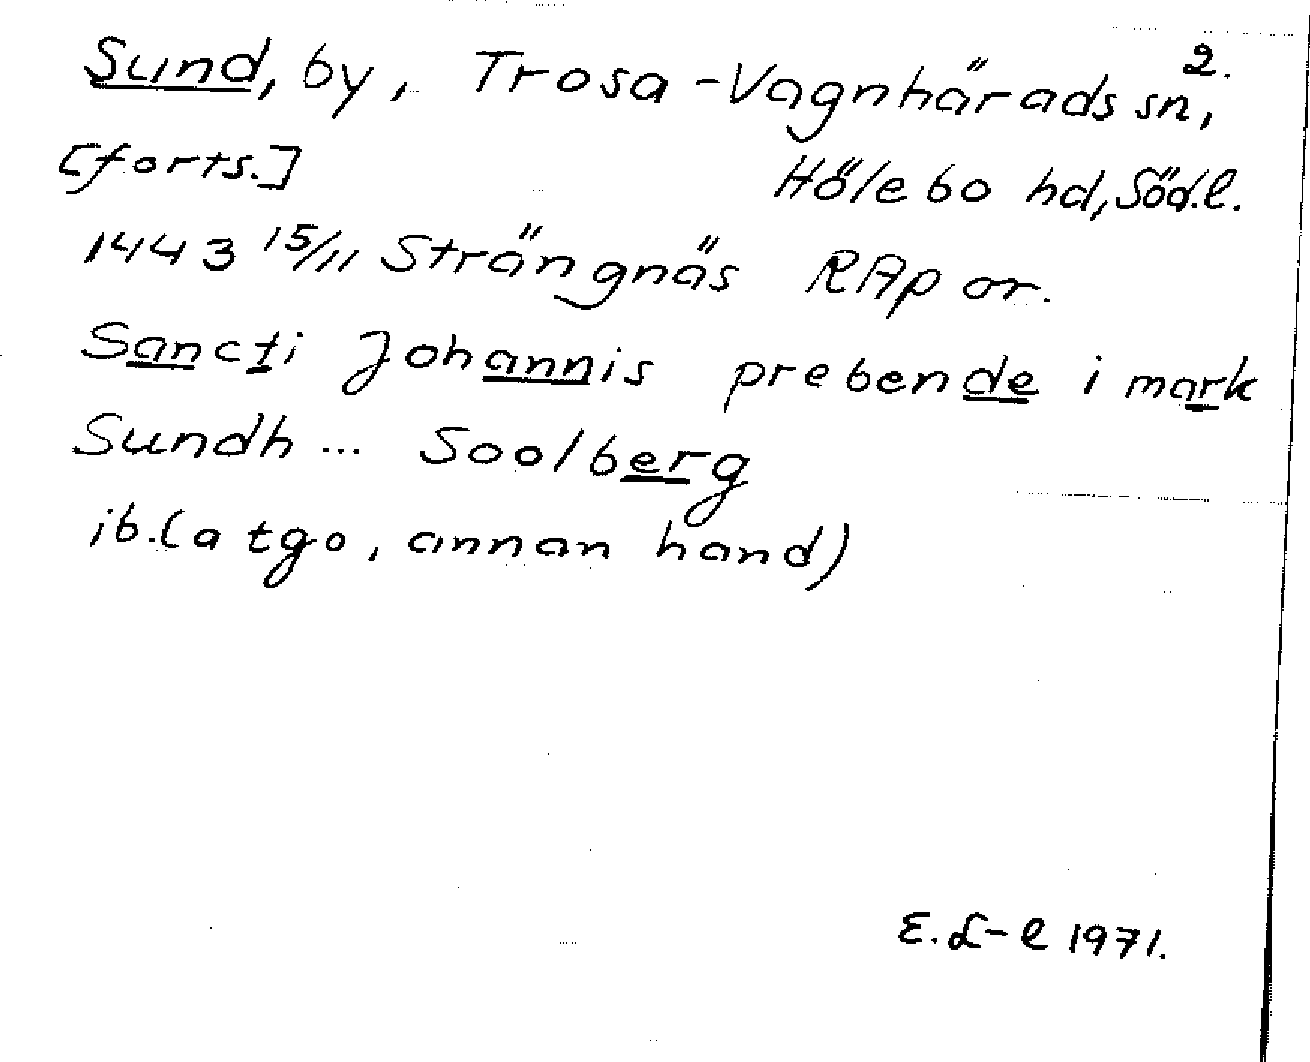 2.
Sund, by, Trosa-Vagnhärads sn,
[forts.] Hölebo hd, Södl.
1443 15/11 Strängnäs RAp or.
Sancti Johannis prebende i mark
Sundh... Soolberg
ib. (a tgo, annan hand)
E. L-l 1971.